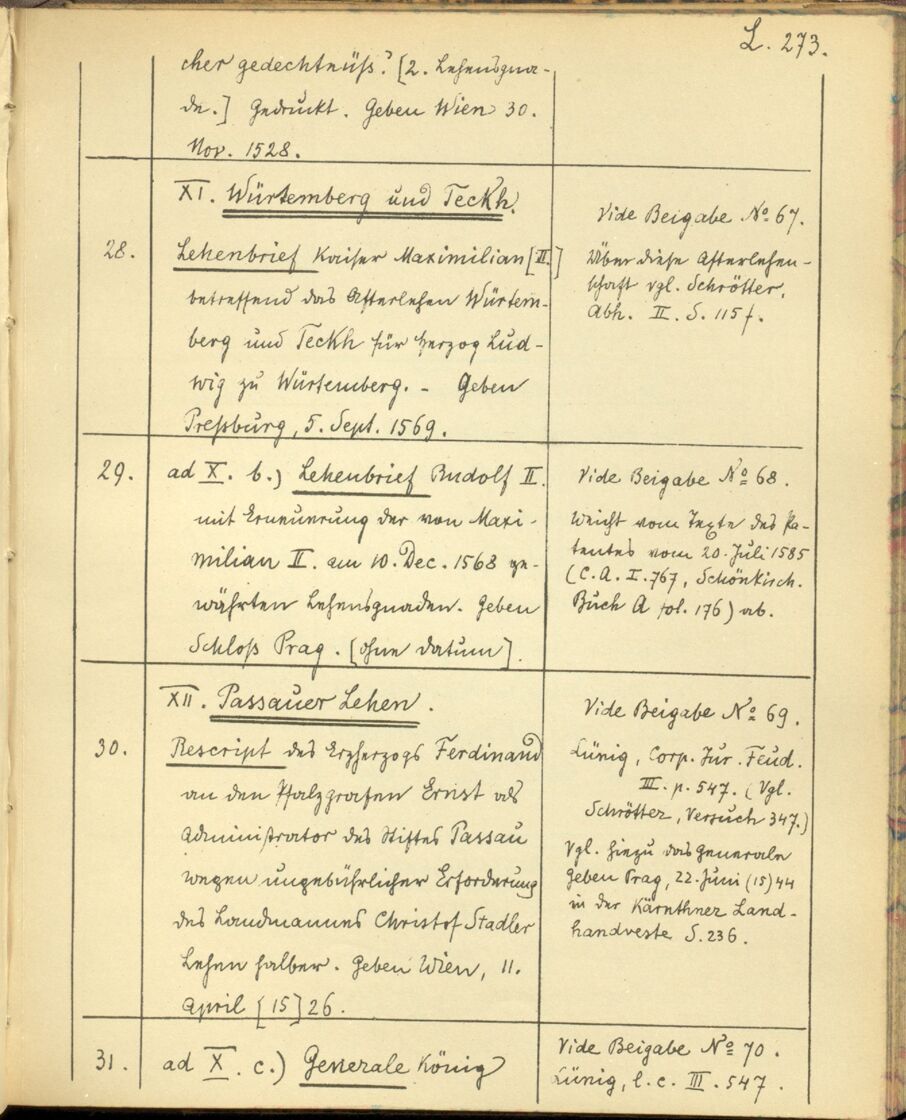 L. 273.
cher gedechtnüß." [2. Lehensgna-
de.] Gedruckt. Geben Wien 30.
Nov. 1528.
XI. Würtemberg und Teckh.
Vide Beigabe No 67.
28.
Lehenbrief Kaiser Maximilian [II.]
betreffend das Afterlehen Würtem-
berg und Teckh für Herzog Lud-
wig zu Würtemberg. - Geben
Preßburg, 5. Sept. 1569.
Über diese Afterlehen-
schaft vgl. Schrötter,
Abh. II. S. 115 f.
29.
ad X. b.) Lehenbrief Rudolf II.
mit Erneuerung der von Maxi-
milian II. am 10. Dec. 1568 ge-
währten Lehensgnaden. Geben
Schloß Prag. [ohne Datum].
Vide Beigabe No 68.
Weicht vom Texte des Pa-
tentes vom 20. Juli 1585
(C. A. I. 767, Schönkirch.
Buch A fol. 176) ab.
XII. Passauer Lehen.
30.
Rescript des Erzherzogs Ferdinand
an den Pfalzgrafen Ernst als
Administrator des Stiftes Passau
wegen ungebührlicher Erforderung
des Landmannes Christof Stadler
Lehen halber. Geben Wien, 11.
April [15]26.
Vide Beigabe No 69.
Lünig, Corp. Jur. Feud.
III. p. 547. (Vgl.
Schrötter, Versuch 347.)
Vgl. hiezu das Generale
Geben Prag, 22. Juni (15)44
in der Kärnthner Land-
handveste S. 236.
31.
ad X. c.) Generale König
Vide Beigabe No 70.
Lünig, l. c. III. 547.